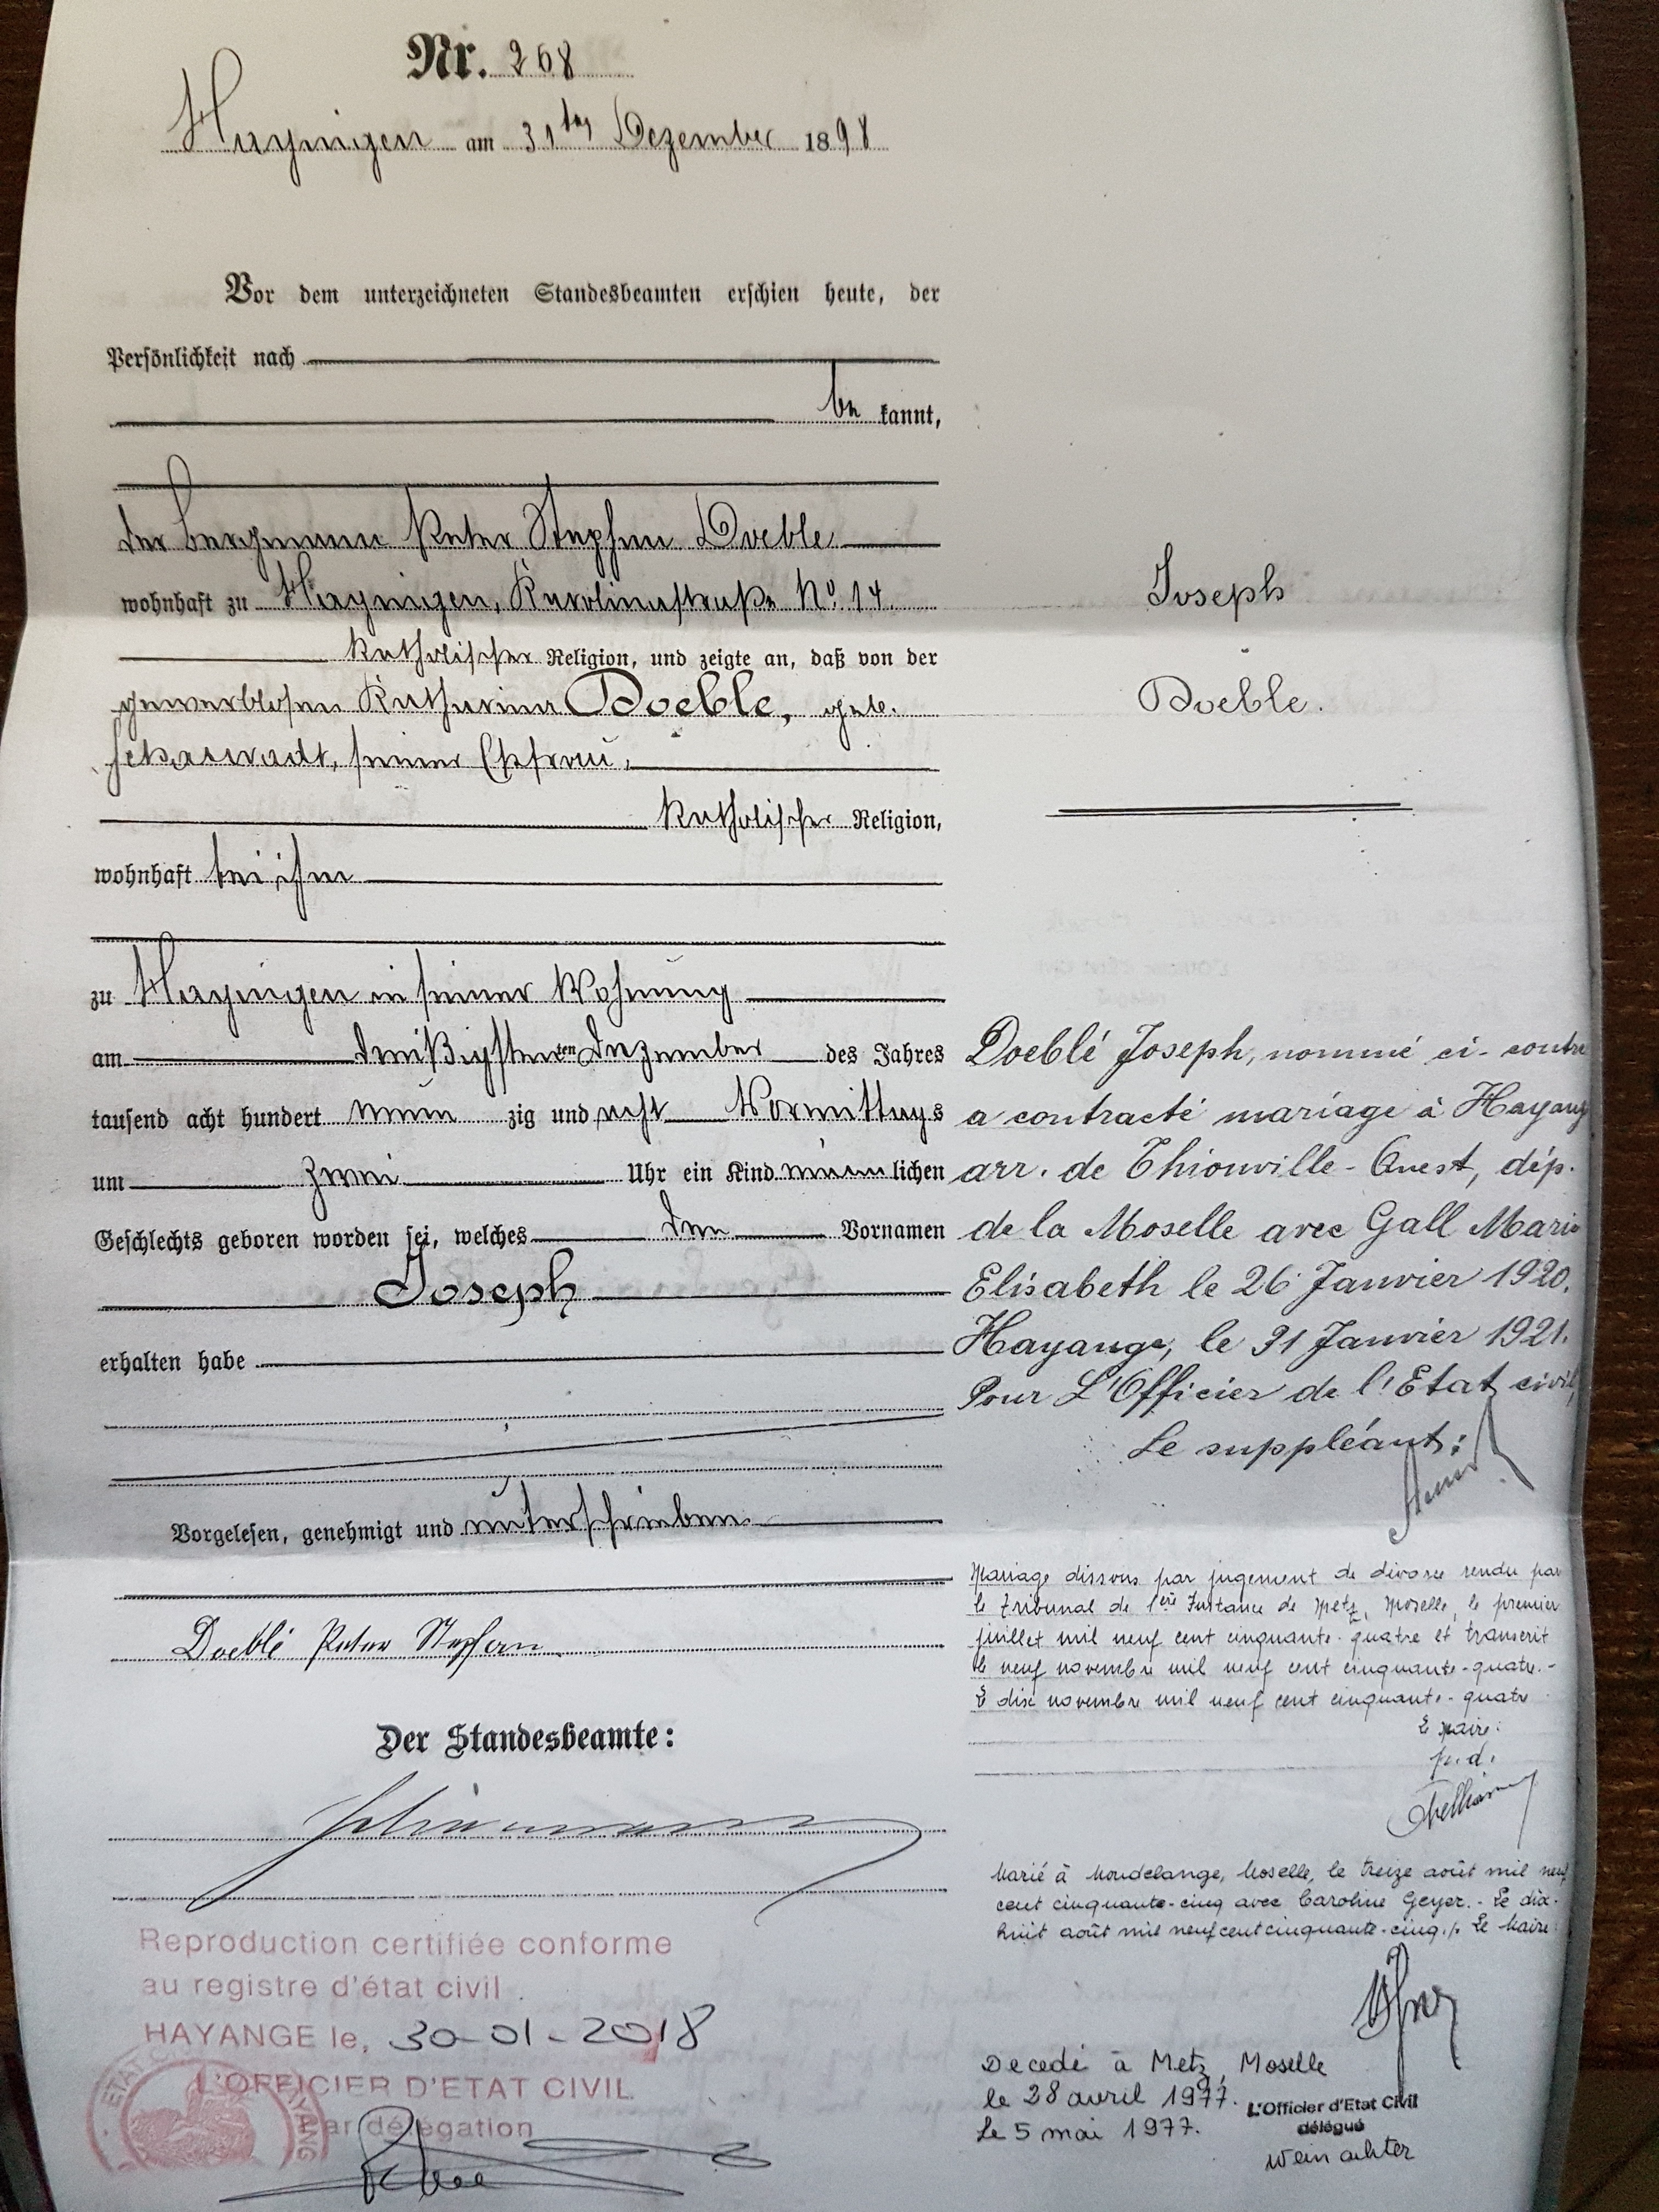 Nr. 268
Hayingen am 31ten Dezember 1898
Vor dem unterzeichneten Standesbeamten erschien heute, der
Persönlichkeit nach
be kannt,
der Bergmann Peter Stephan Doeble
wohnhaft zu Hayingen, Karolinastraße No. 14.
katholischer Religion, und zeigte an, daß von der
gewerblosen Katharina Doeble, geb.
seiner Ehefrau,
katholischer Religion,
wohnhaft bei ihm
zu Hayingen in seiner Wohnung
am dreißigsten ten Dezember des Jahres
tausend acht hundert neun zig und acht Vormittags
um zwei Uhr ein Kind männlichen
Geschlechts geboren worden sei, welches den Vornamen
Joseph
erhalten habe
Vorgelesen, genehmigt und unterschrieben
Doeblé Peter Stephan
Der Standesbeamte:
Reproduction certifiée conforme
au registre d'état civil
HAYANGE le, 30-01-2018
L'OFFICIER D'ETAT CIVIL
Par délégation
Joseph
Doeble.
Doeblé Joseph, nommé ci-contre
a contracté mariage à Hayang
arr. de Thionville-Ouest, dép.
de la Moselle avec Gall Marie
Elisabeth le 26 Janvier 1920.
Hayange, le 31 Janvier 1921.
Pour L'Officier de l'Etat civil,
Le suppléant:
Mariage dissous par jugement de divorce rendu par
le tribunal de 1ère Instance de Metz, Moselle, le premier
juillet mil neuf cent cinquante-quatre et transcrit
le neuf novembre mil neuf cent cinquante-quatre.-
Le dix novembre mil neuf cent cinquante-quatre
Le Maire:
p.d.
Marié à Mondelange, Moselle, le treize août mil neuf
cent cinquante-cinq avec Caroline Geyer.- Le dix-
huit août mil neuf cent cinquante-cinq./. Le Maire:
Decedé à Metz, Moselle
le 28 avril 1977.
Le 5 mai 1977.
L'Officier d'Etat Civil
délégué
Wein achter